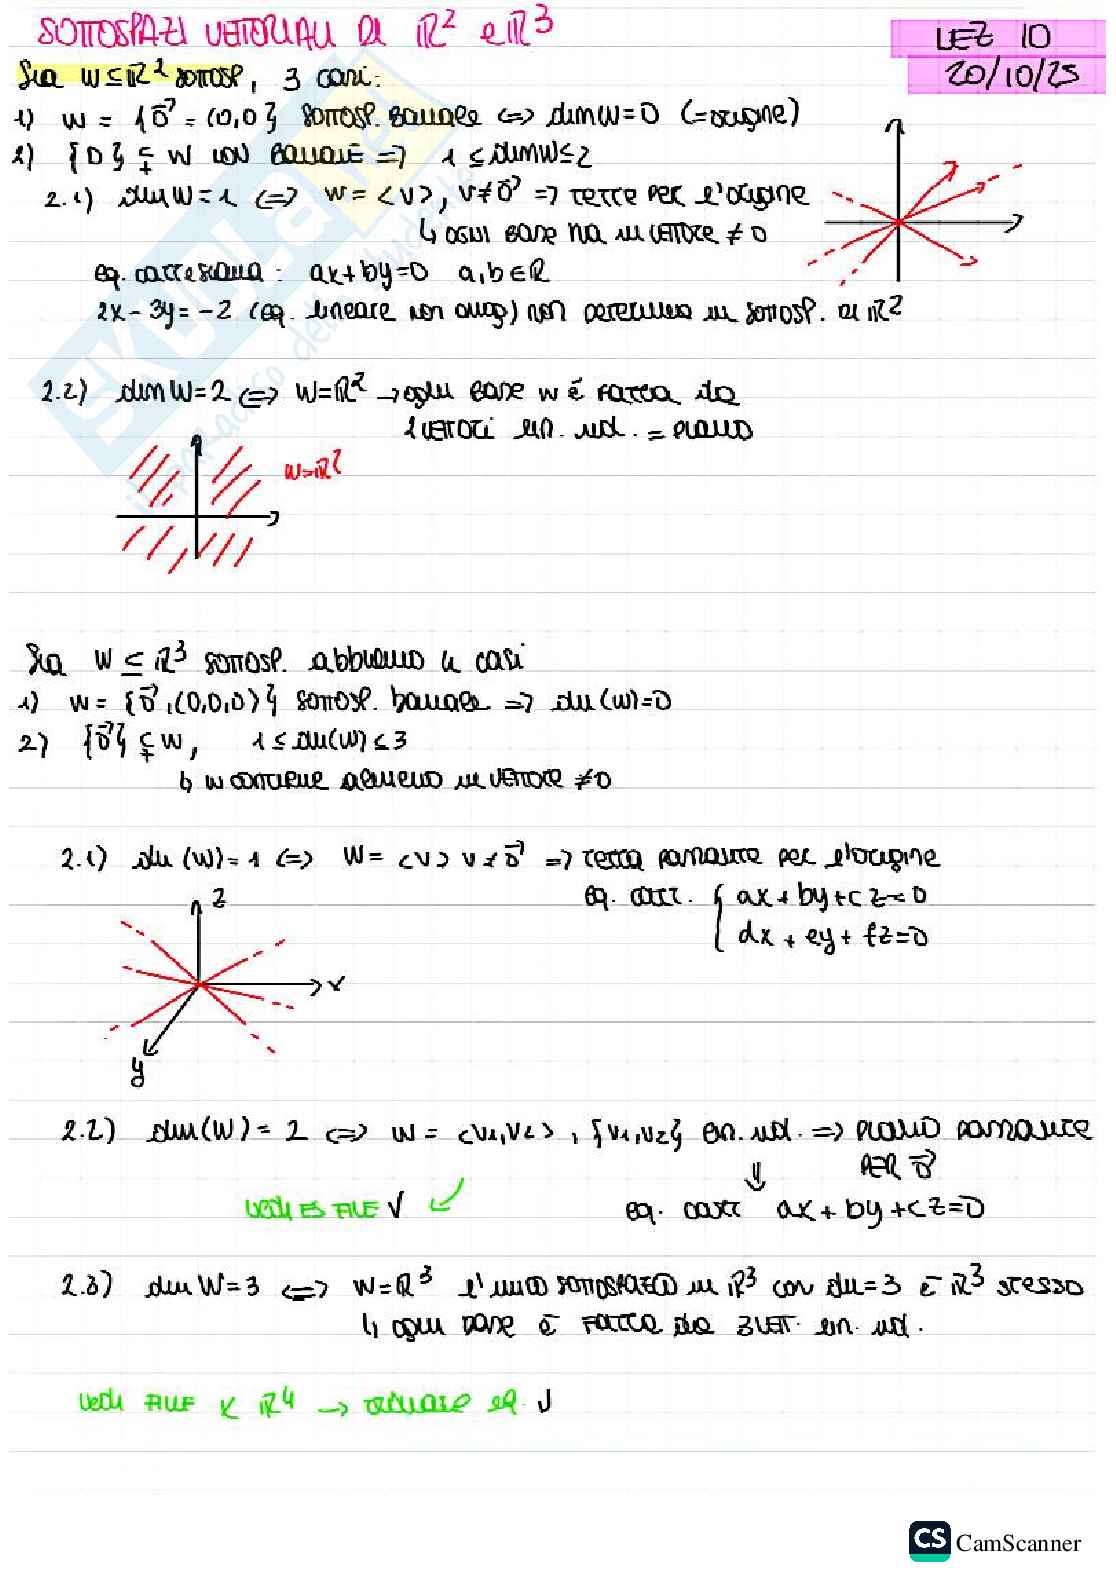 SOTTOSPAZI VETORIALI DI ℝ² e ℝ³
LEZ 10
20/10/25
Sia W ⊆ ℝ² sottosp, 3 casi:
1) W = {0⃗ = (0,0)} sottosp. banale <=> dim W = 0 (= origine)
2) {0} ⊊ W non banale => 1 ≤ dim W ≤ 2
2.1) dim W = 1 <=> W = <v>, v ≠ 0⃗ => rette per l'origine
↳ ogni base ha un vettore ≠ 0
eq. cartesiana: ax + by = 0 a, b ∈ ℝ
2x - 3y = -2 (eq. lineare non omog) non determina un sottosp. di ℝ²
2.2) dim W = 2 <=> W = ℝ² → ogni base W è fatta da
2 vettori lin. ind. = piano
W = ℝ²
Sia W ⊆ ℝ³ sottosp. abbiamo 4 casi
1) W = {0⃗, (0,0,0)} sottosp. banale => dim (W) = 0
2) {0⃗} ⊊ W, 1 ≤ dim(W) ≤ 3
↳ W contiene almeno un vettore ≠ 0
2.1) dim (W) = 1 <=> W = <v> v ≠ 0⃗ => retta passante per l'origine
eq. cart. { ax + by + cz = 0
dx + ey + fz = 0
z
x
y
2.2) dim(W) = 2 <=> W = <v1, v2>, {v1, v2} lin. ind. => piano passante
PER 0⃗
vedi ES FILE √
eq. cart ax + by + cz = 0
2.3) dim W = 3 <=> W = ℝ³ l'unico sottospazio in ℝ³ con dim = 3 è ℝ³ stesso
↳ ogni base è fatta da 3 vet. lin. ind.
vedi FILE x ℝ⁴ → ricavare eq. √
CS CamScanner